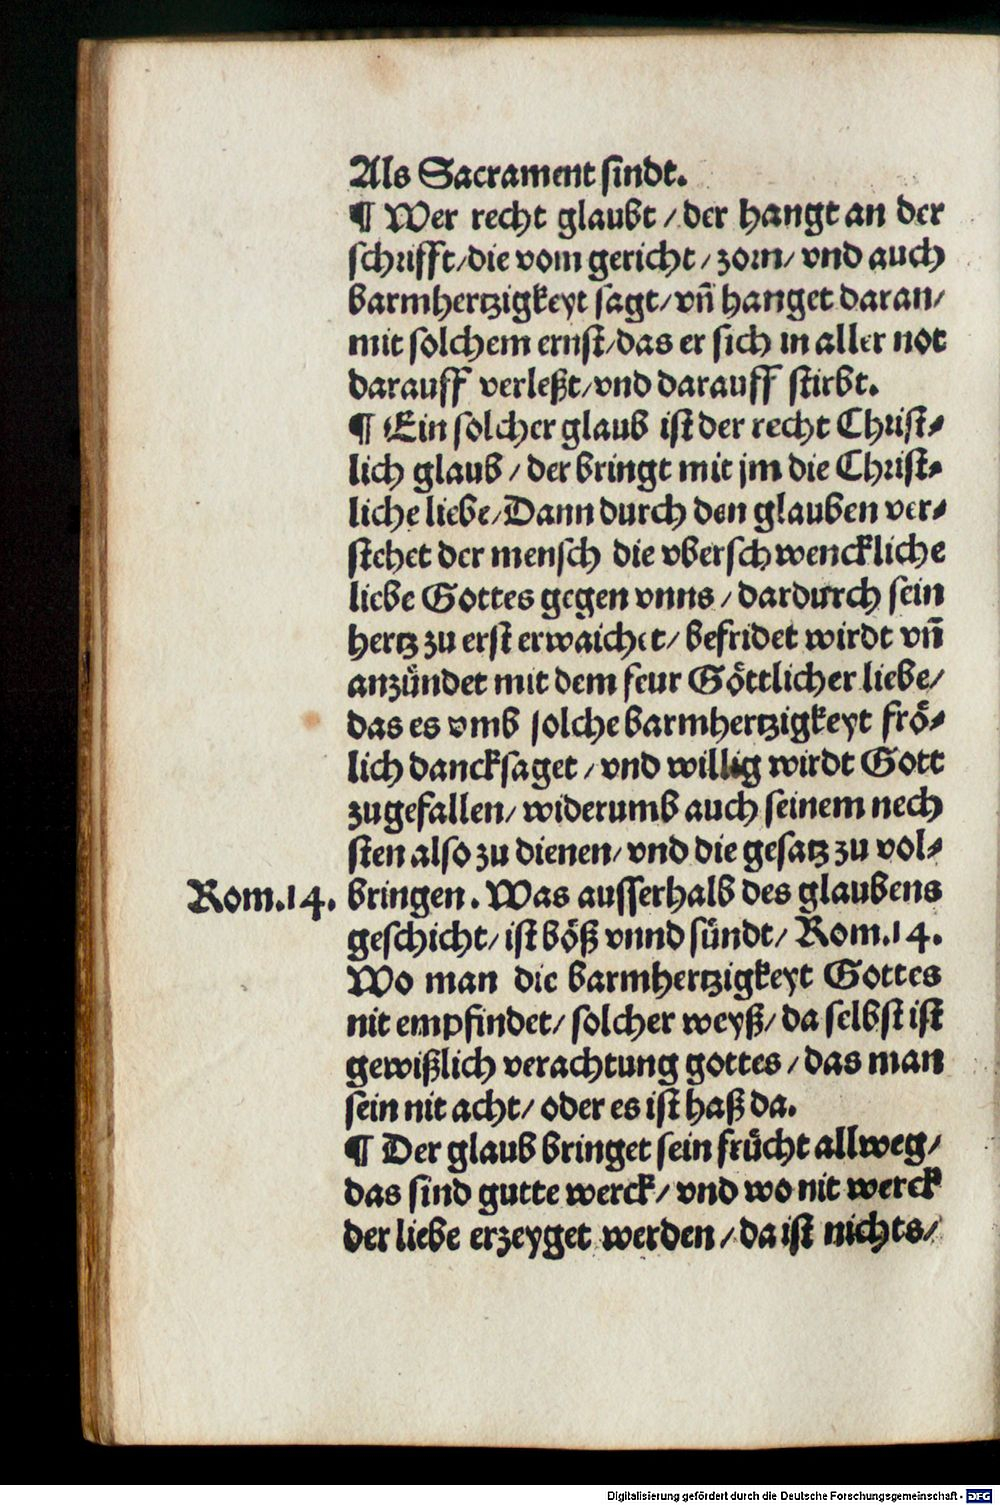 Als Sacrament sindt.
¶ Wer recht glaubt / der hangt an der
schrifft / die vom gericht / zorn / vnd auch
barmhertzigkeyt sagt / vñ hanget daran /
mit solchem ernst / das er sich in aller not
darauff verleßt / vnd darauff stirbt.
¶ Ein solcher glaub ist der recht Christ⸗
lich glaub / der bringt mit jm die Christ⸗
liche liebe / Dann durch den glauben ver⸗
stehet der mensch die vberschwenckliche
liebe Gottes gegen vnns / dardurch sein
hertz zu erst erwaichet / befridet wirdt vñ
anzündet mit dem feur Göttlicher liebe /
das es vmb solche barmhertzigkeyt frö⸗
lich dancksaget / vnd willig wirdt Gott
zugefallen / widerumb auch seinem nech
sten also zu dienen / vnd die gesatz zu vol⸗
Rom.14. bringen. Was ausserhalb des glaubens
geschicht / ist böß vnnd sündt / Rom.14.
Wo man die barmhertzigkeyt Gottes
nit empfindet / solcher weyß / da selbst ist
gewißlich verachtung gottes / das man
sein nit acht / oder es ist haß da.
¶ Der glaub bringet sein frücht allweg /
das sind gutte werck / vnd wo nit werck
der liebe erzeyget werden / da ist nichts /
Digitalisierung gefördert durch die Deutsche Forschungsgemeinschaft - DFG